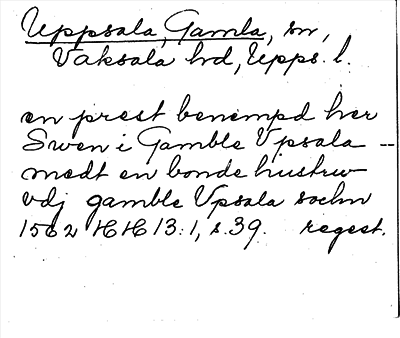 Uppsala, Gamla, sn,
Vaksala hd, Upps. l.
en prest benempd her
Swen i Gamble Vpsala --
medt en bonde hustrw
vdj gamble Vpsala sochn
1562 HH 13:1, s. 39. regest.